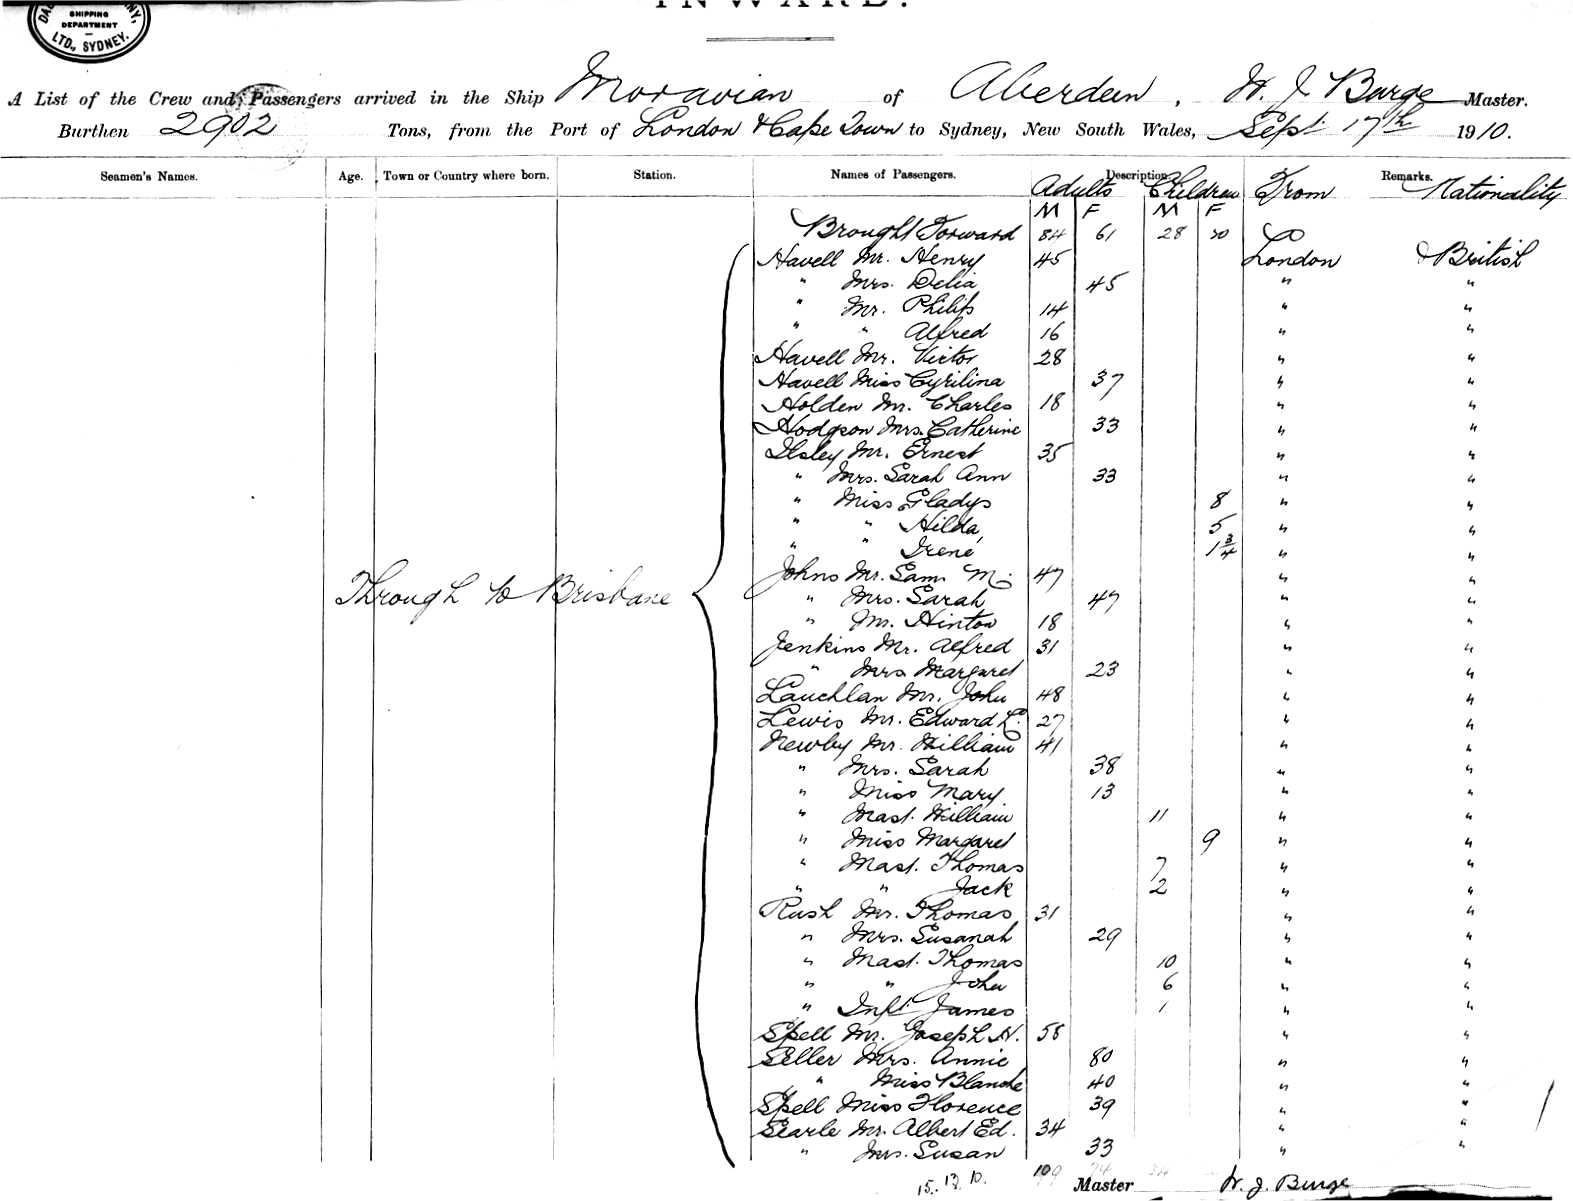 INWARD.
SHIPPING
DEPARTMENT
LTD., SYDNEY.
A List of the Crew and Passengers arrived in the Ship Moravian of Aberdeen, W. J. Burge Master.
Burthen 2902 Tons, from the Port of London & Cape Town to Sydney, New South Wales, Sept 17th 1910.
Seamen's Names. Age. Town or Country where born. Station. Names of Passengers. Description. Remarks.
Adults Children From Nationality
M F M F
Brought Forward 84 61 28 20
Havell Mr. Henry 45 London British
" Mrs. Delia 45 " "
" Mr. Philip 14 " "
" " Alfred 16 " "
Havell Mr. Victor 28 " "
Havell Miss Cyrilina 37 " "
Holden Mr. Charles 18 " "
Hodgson Mrs. Catherine 33 " "
Ilsley Mr. Ernest 35 " "
" Mrs. Sarah Ann 33 " "
" Miss Gladys 8 " "
" " Hilda, 5 " "
" " Irene 1 3/4 " "
Johns Mr. Sam. M. 47 " "
Through to Brisbane
" Mrs. Sarah 47 " "
" Mr. Hinton 18 " "
Jenkins Mr. Alfred 31 " "
" Mrs Margaret 23 " "
Lauchlan Mr. John 48 " "
Lewis Mr. Edward L. 27 " "
Newby Mr. William 41 " "
" Mrs. Sarah 38 " "
" Miss Mary. 13 " "
" Mast. William 11 " "
" Miss Margaret 9 " "
" Mast. Thomas 7 " "
" " Jack 2 " "
Rush Mr. Thomas 31 " "
" Mrs. Susanah 29 " "
" Mast. Thomas 10 " "
" " John 6 " "
" Inft. James 1 " "
Spell Mr. Joseph H. 58 " "
Seller Mrs. Annie 80 " "
" Miss Blanche 40 " "
Spell Miss Florence 39 " "
Searle Mr. Albert Ed. 34 " "
" Mrs. Susan 33 " "
15. 13. 10. Master W. J. Burge